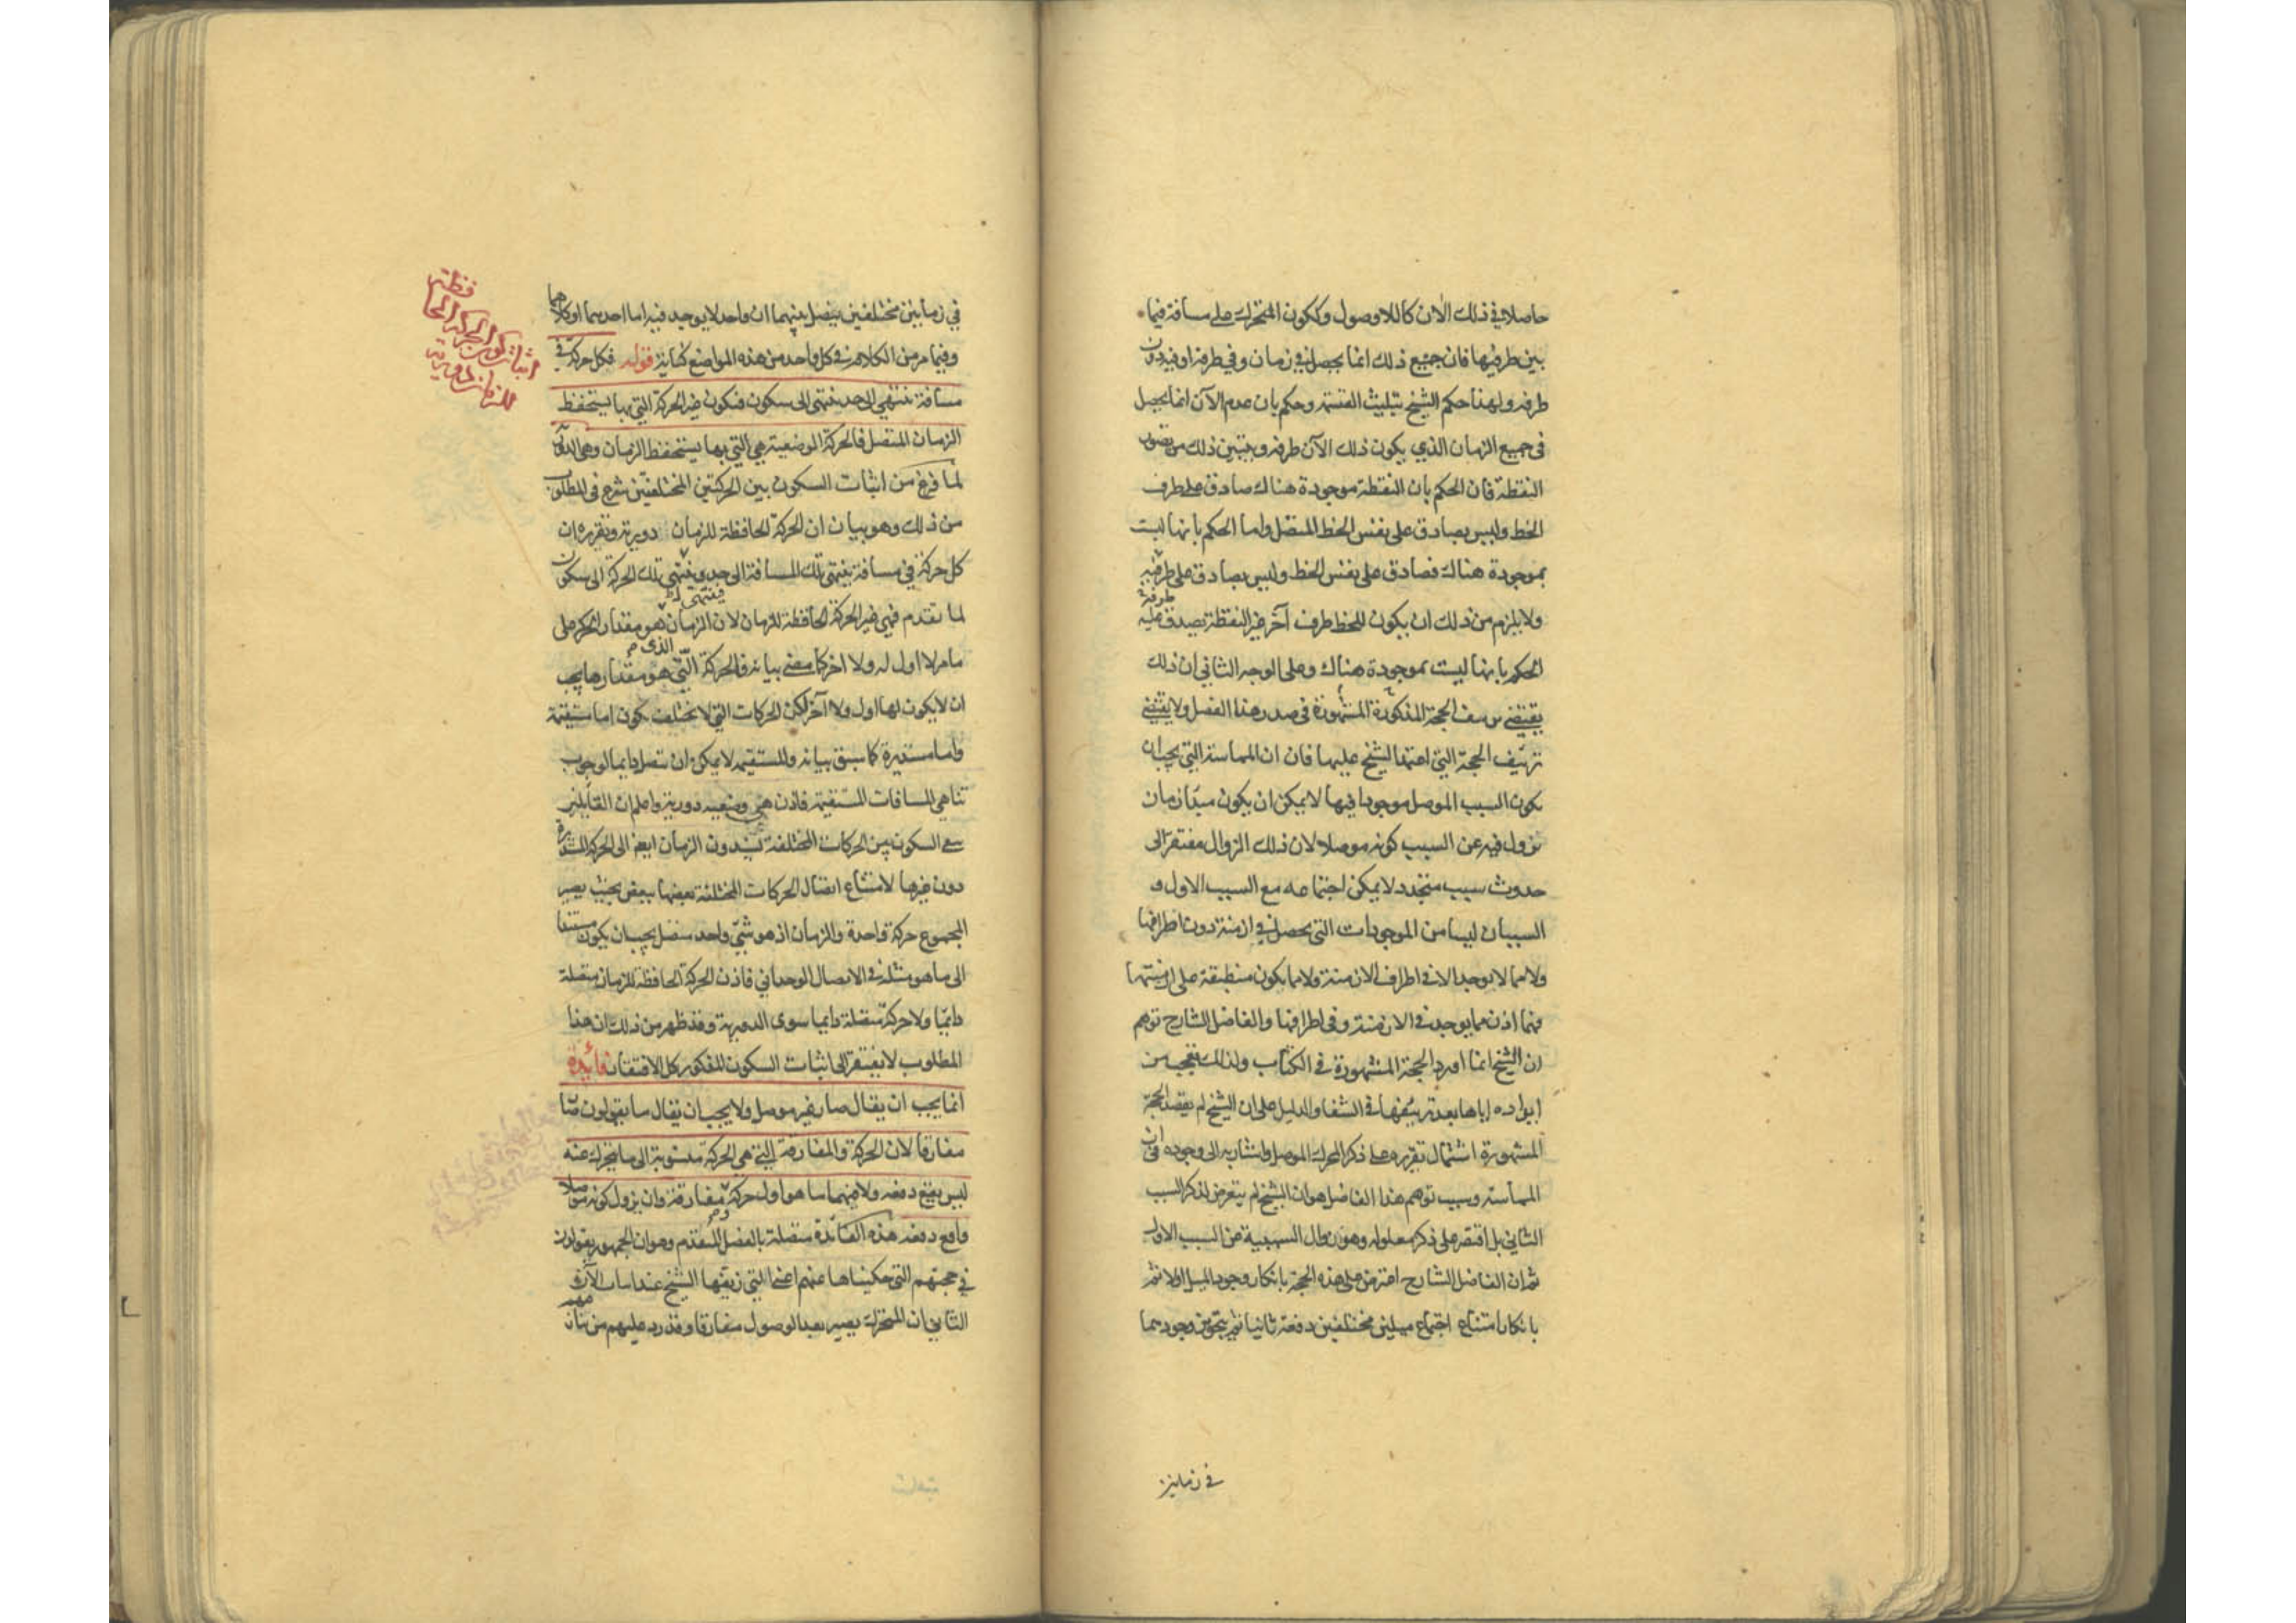 حاصلا في ذلك الآن كاللاوصول وككون المتحرك على مسافة فيما
بين طرفيها فان جميع ذلك انما يحصل في زمان وفي طرفه او فيه دون
طرفه ولهذا حكم الشيخ بتثليث القسمة وحكم بان عدم الآن انما يحصل
في جميع الزمان الذي يكون ذلك الآن طرفه ويتبين ذلك من تصور
النقطة فان الحكم بان النقطة موجودة هناك صادق على طرف
الخط وليس بصادق على نفس الخط المتصل واما الحكم بانها ليست
بموجودة هناك فصادق على نفس الخط وليس بصادق على طرفيه
طرفه
ولا يلزم من ذلك ان يكون للخط طرف آخر غير النقطة يصدق عليه
الحكم بانها ليست بموجودة هناك وعلى الوجه الثاني ان ذلك
يقتضي الحجة المذكورة المشهورة في صدر هذا الفصل ولا يقتضي
تزييف الحجة التي اعتمد الشيخ عليها فان ان المماسة التي يجب ان
يكون السبب الموصل موجودا فيها لا يمكن ان يكون مبدأ زمان
يزول فيه عن السبب كونه موصلا لان ذلك الزوال مفتقر الى
حدوث سبب متجدد لا يمكن اجتماعه مع السبب الاول و
السببان ليسا من الموجودات التي يحصل في ازمنة دون اطرافها
ولا مما لا يوجد الا في اطراف الازمنة ولا مما يكون منطبقة على ازمنتها
فهما اذن مما يوجد في الازمنة وفي اطرافها والفاضل الشارح توهم
ان الشيخ انما اورد الحجة المشهورة في الكتاب ولذلك تعجب من
ايراده اياها بعد تزييفها في الشفا والدليل على ان الشيخ لم يقصد الحجة
المشهورة اشتمال تقريره على ذكر المحرك الموصل واشارته الى وجوده في ان
المماسة وسبب توهم هذا الفاضل هو ان الشيخ لم يتعرض لذكر السبب
الثاني بل اقتصر على ذكر معلوله وهو زوال السببية عن السبب الاول
ثم ان الفاضل الشارح اعترض على هذه الحجة بانكار وجود الميل اولا ثم
بانكار امتناع اجتماع ميلين مختلفين دفعة ثانيا ثم بتجويز وجودهما
في زمانين
في زمانين مختلفين يفصل بينهما ان واحد لا يوجد فيه اما احدهما او كلاهما
وفيما مر من الكلام في كل واحد من هذه المواضع كفاية قوله فكل حركة في
مسافة تنتهي الى حد تنتهي الى سكون فتكون غير الحركة التي بها يستحفظ
الزمان المتصل فالحركة الوضعية هي التي بها يستحفظ الزمان وهي الدورية
لما فرغ من اثبات السكون بين الحركتين المختلفتين شرع في المطلوب
من ذلك وهو بيان ان الحركة الحافظة للزمان دورية وتقريره ان
كل حركة في مسافة ينتهي تلك المسافة الى حد وينتهي تلك الحركة الى سكون
فينتهي
لما تقدم فهي غير الحركة الحافظة للزمان لان الزمان هو مقدار الحركة على
الذي
ما مر لا اول له ولا آخر كما مضى بيانه فالحركة التي هو مقدارها يجب
ان لا يكون لها اول ولا آخر لكن الحركات التي لا تختلف تكون اما مستقيمة
واما مستديرة كما سبق بيانه والمستقيمة لا يمكن ان تتصل دايما لوجوب
تناهي المسافات المستقيمة فاذن هي وضعية دورية واعلم ان القايلين
السكون بين الحركات المختلفة يسندون الزمان ايضا الى الحركة المستديرة
دون غيرها لامتناع اتصال الحركات المختلفة بعضها ببعض بحيث يصير
المجموع حركة واحدة والزمان اذ هو شيء واحد متصل يجب ان يكون مستندا
الى ما هو مثله في الاتصال الوحداني فاذن الحركة الحافظة للزمان متصلة
دايما ولا حركة متصلة دايما سوى الدورية وقد ظهر من ذلك ان هذا
المطلوب لا يفتقر الى اثبات السكون المذكور كل الافتقار فائدة
انما يجب ان يقال صار غير موصل ولا يجب ان يقال ما يقولون صار
مفارقا لان الحركة والمفارقة التي هي الحركة منسوبة الى ما يتحرك عنه
ليس يقع دفعة ولا فيهما ما هو اول حركة ومفارقة وان يزول كونه موصلا
واقع دفعة هذه الفائدة متصلة بالفصل المتقدم وهو ان الجمهور يقولون
في حجتهم التي حكيناها عنهم اعني التي زيفها الشيخ عند اثبات الآن
الثاني ان المتحرك يصير بعد الوصول مفارقا وقد رد عليهم من
اثبات كون الحركة الحافظة
للزمان دورية